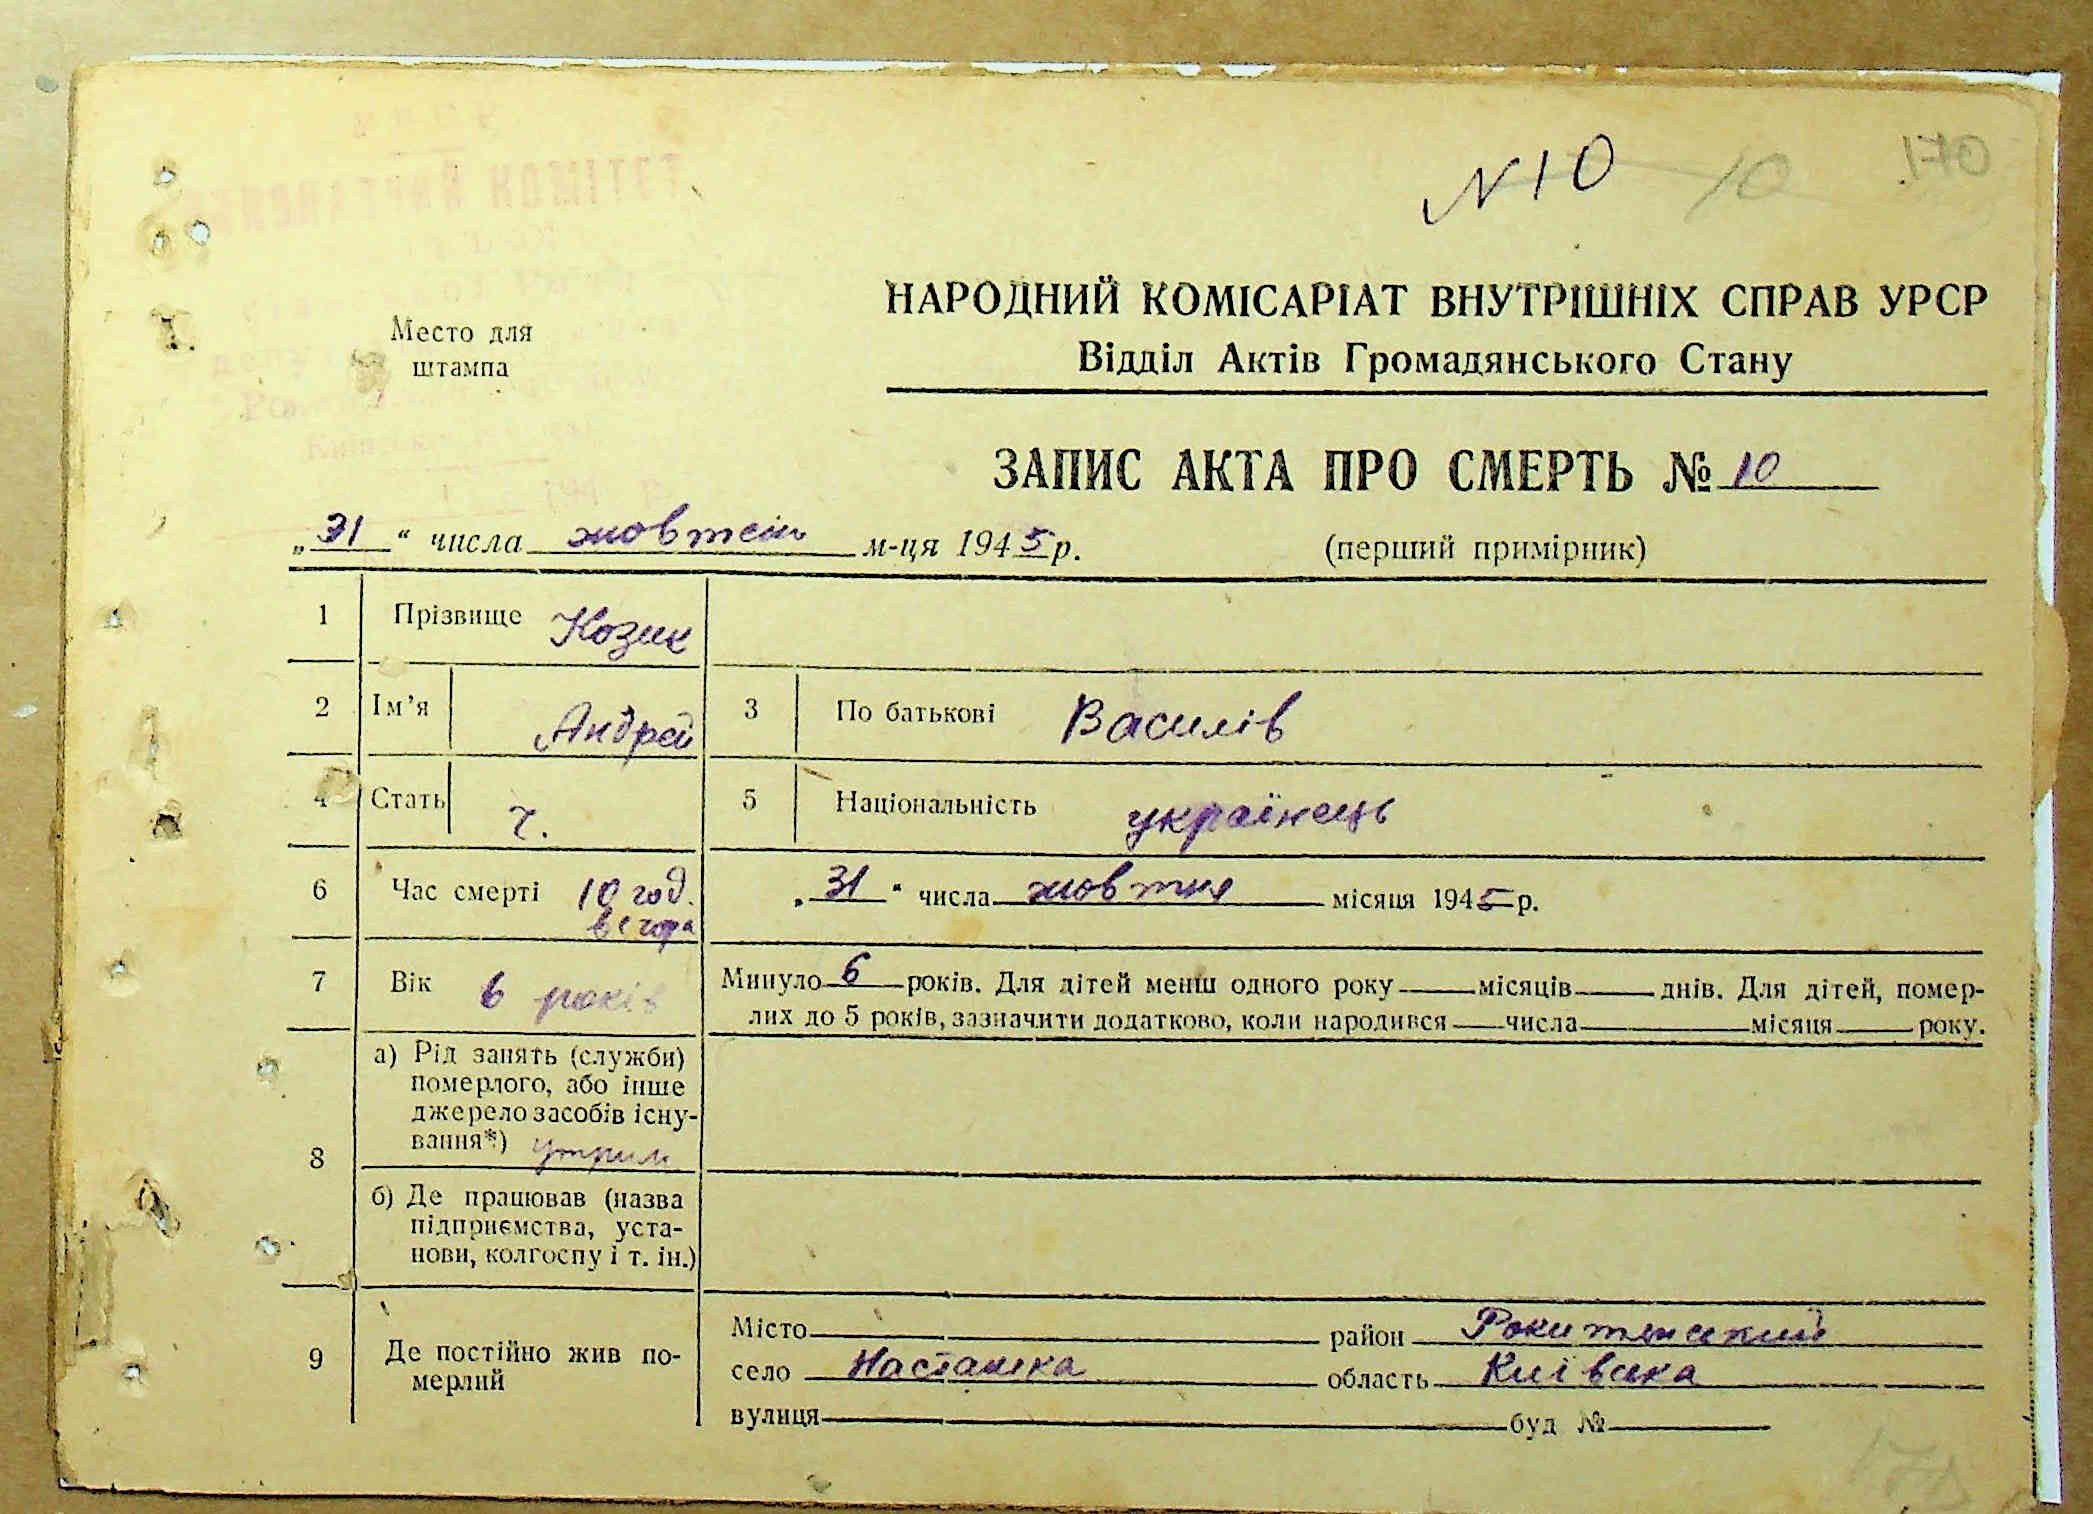 N 10 10
НАРОДНИЙ КОМІСАРІАТ ВНУТРІШНІХ СПРАВ УРСР
Відділ Актів Громадянського Стану
Место для
штампа
ЗАПИС АКТА ПРО СМЕРТЬ № 10
„31“ числа жовтень м-ця 1945 р.
(перший примірник)
1 Прізвище Козик
2 Ім’я Андрей 3 По батькові Василів
4 Стать ч. 5 Національність українець
6 Час смерті 10 год. вечора „31“ числа жовтня місяця 1945 р.
7 Вік 6 років Минуло 6 років. Для дітей менш одного року місяців днів. Для дітей, помер-
лих до 5 років, зазначити додатково, коли народився числа місяця року.
8 а) Рід занять (служби)
померлого, або інше
джерело засобів існу-
вання*) утрим
б) Де працював (назва
підприємства, уста-
нови, колгоспу і т. ін.)
9 Де постійно жив по-
мерлий
Місто район Рокитянский
село Насташка область Київська
вулиця буд №